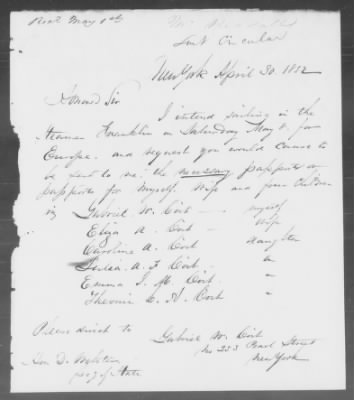 Recd May 1st
Sent Circular
New York April 30. 1852
Honored Sir
I intend sailing in the
Steamer Franklin on Saturday May 8. for
Europe. and request you would cause to
be sent to me the necessary passport or
passports for myself. wife and four children
viz Gabriel W. Coit — myself
Eliza A. Coit — wife
Caroline A. Coit daughter
A. F. Coit — "
Emma J. M. Coit. "
A. Coit "
Please direct to
Gabriel W. Coit
No 253 Pearl Street
New York
Hon D. Webster
Secy of State